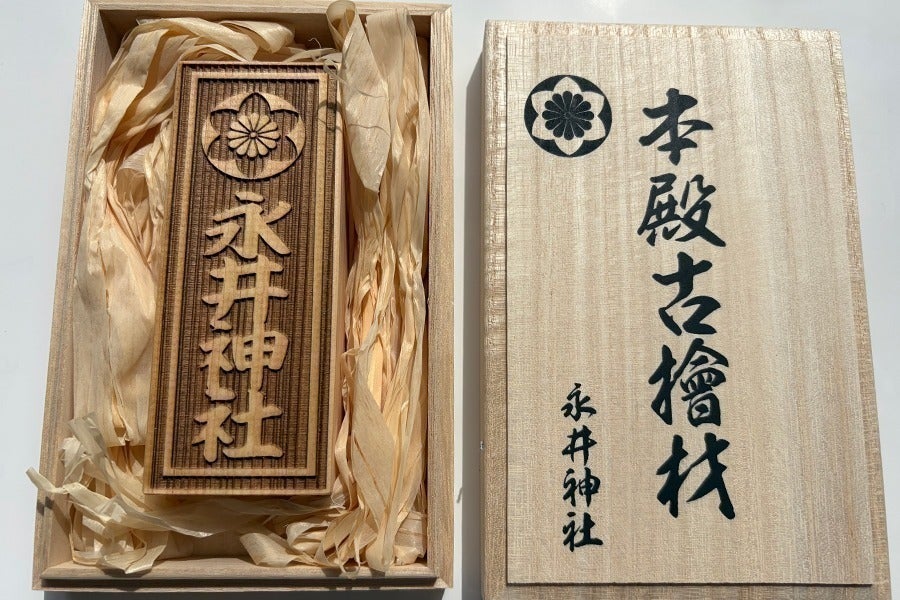 永井神社
本殿古檜材
永井神社